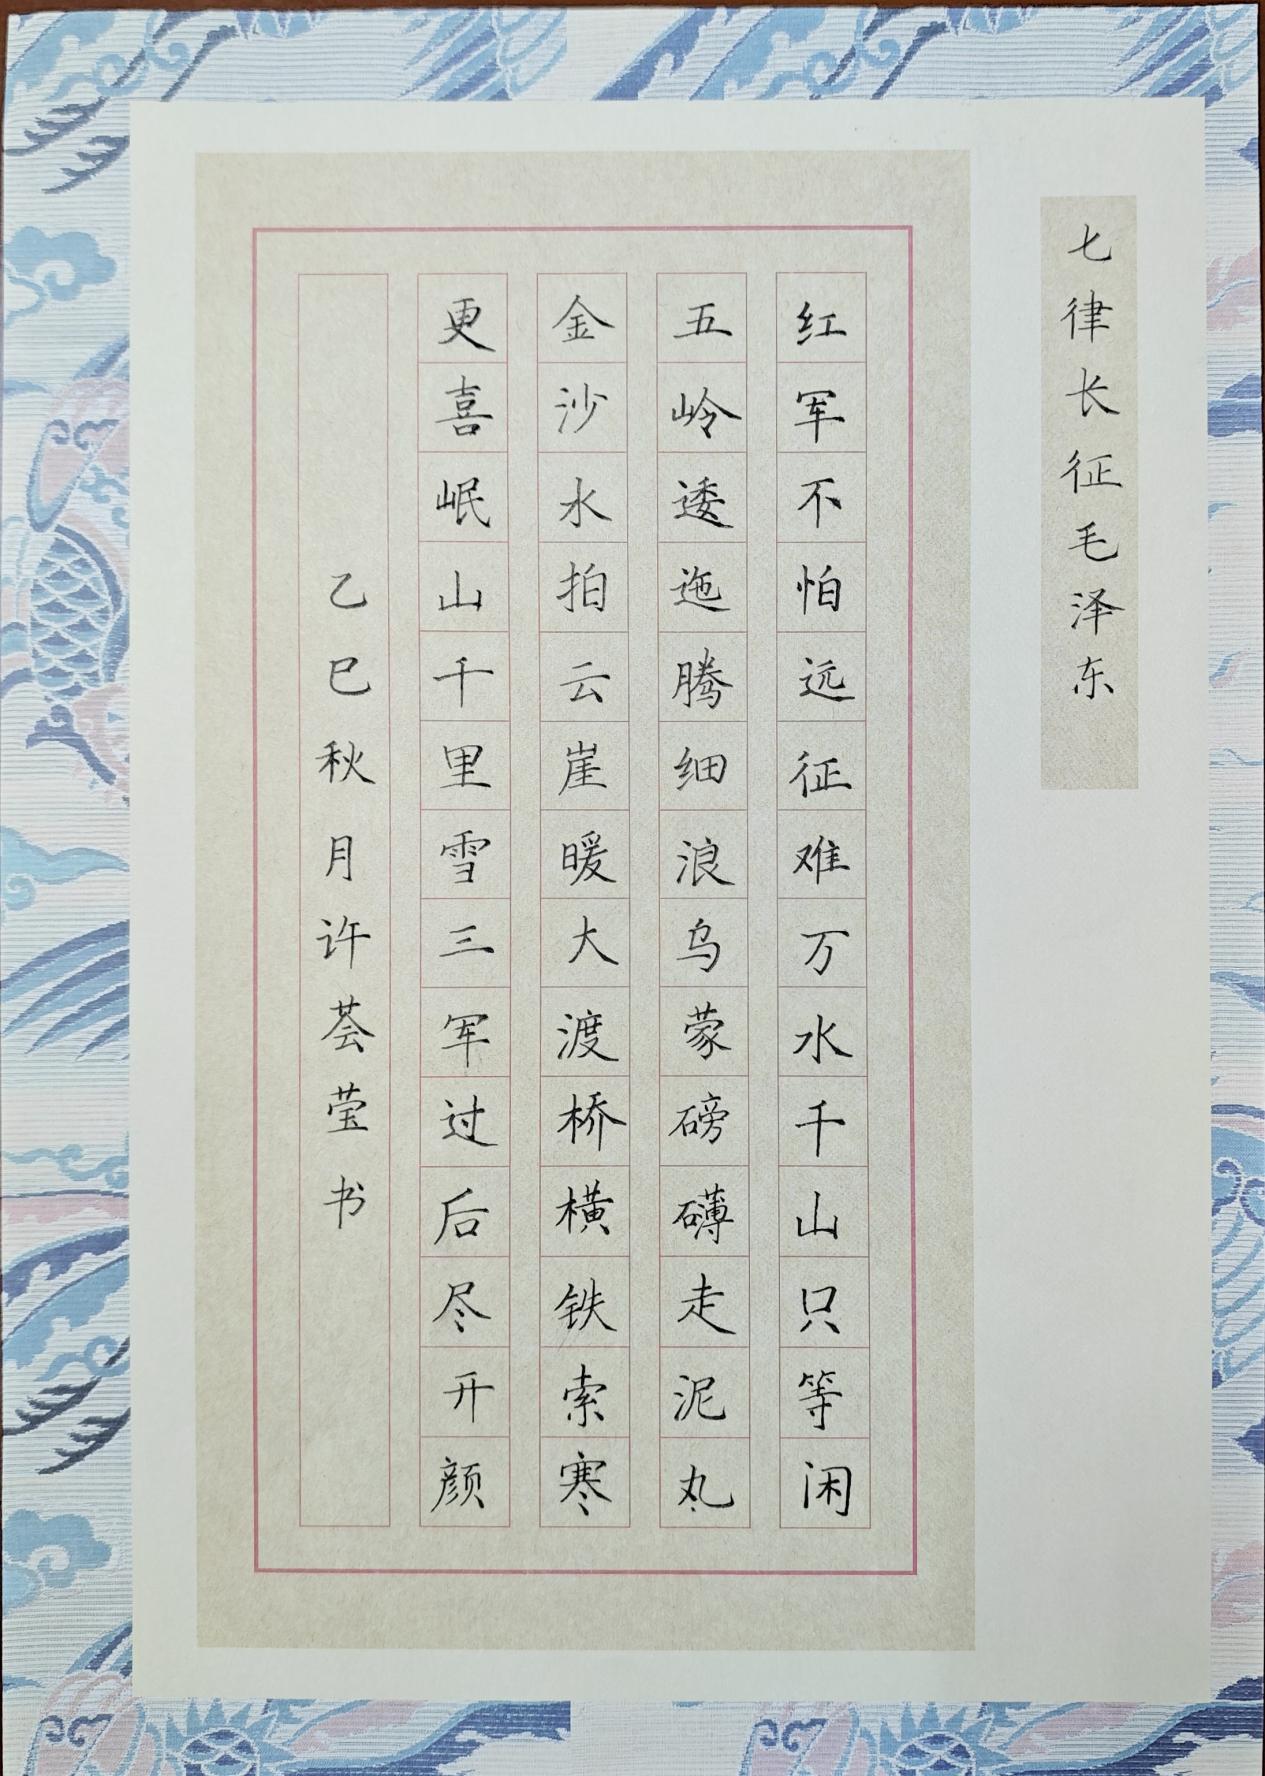 七律长征毛泽东
红军不怕远征难万水千山只等闲
五岭逶迤腾细浪乌蒙磅礴走泥丸
金沙水拍云崖暖大渡桥横铁索寒
更喜岷山千里雪三军过后尽开颜
乙巳秋月许荟莹书